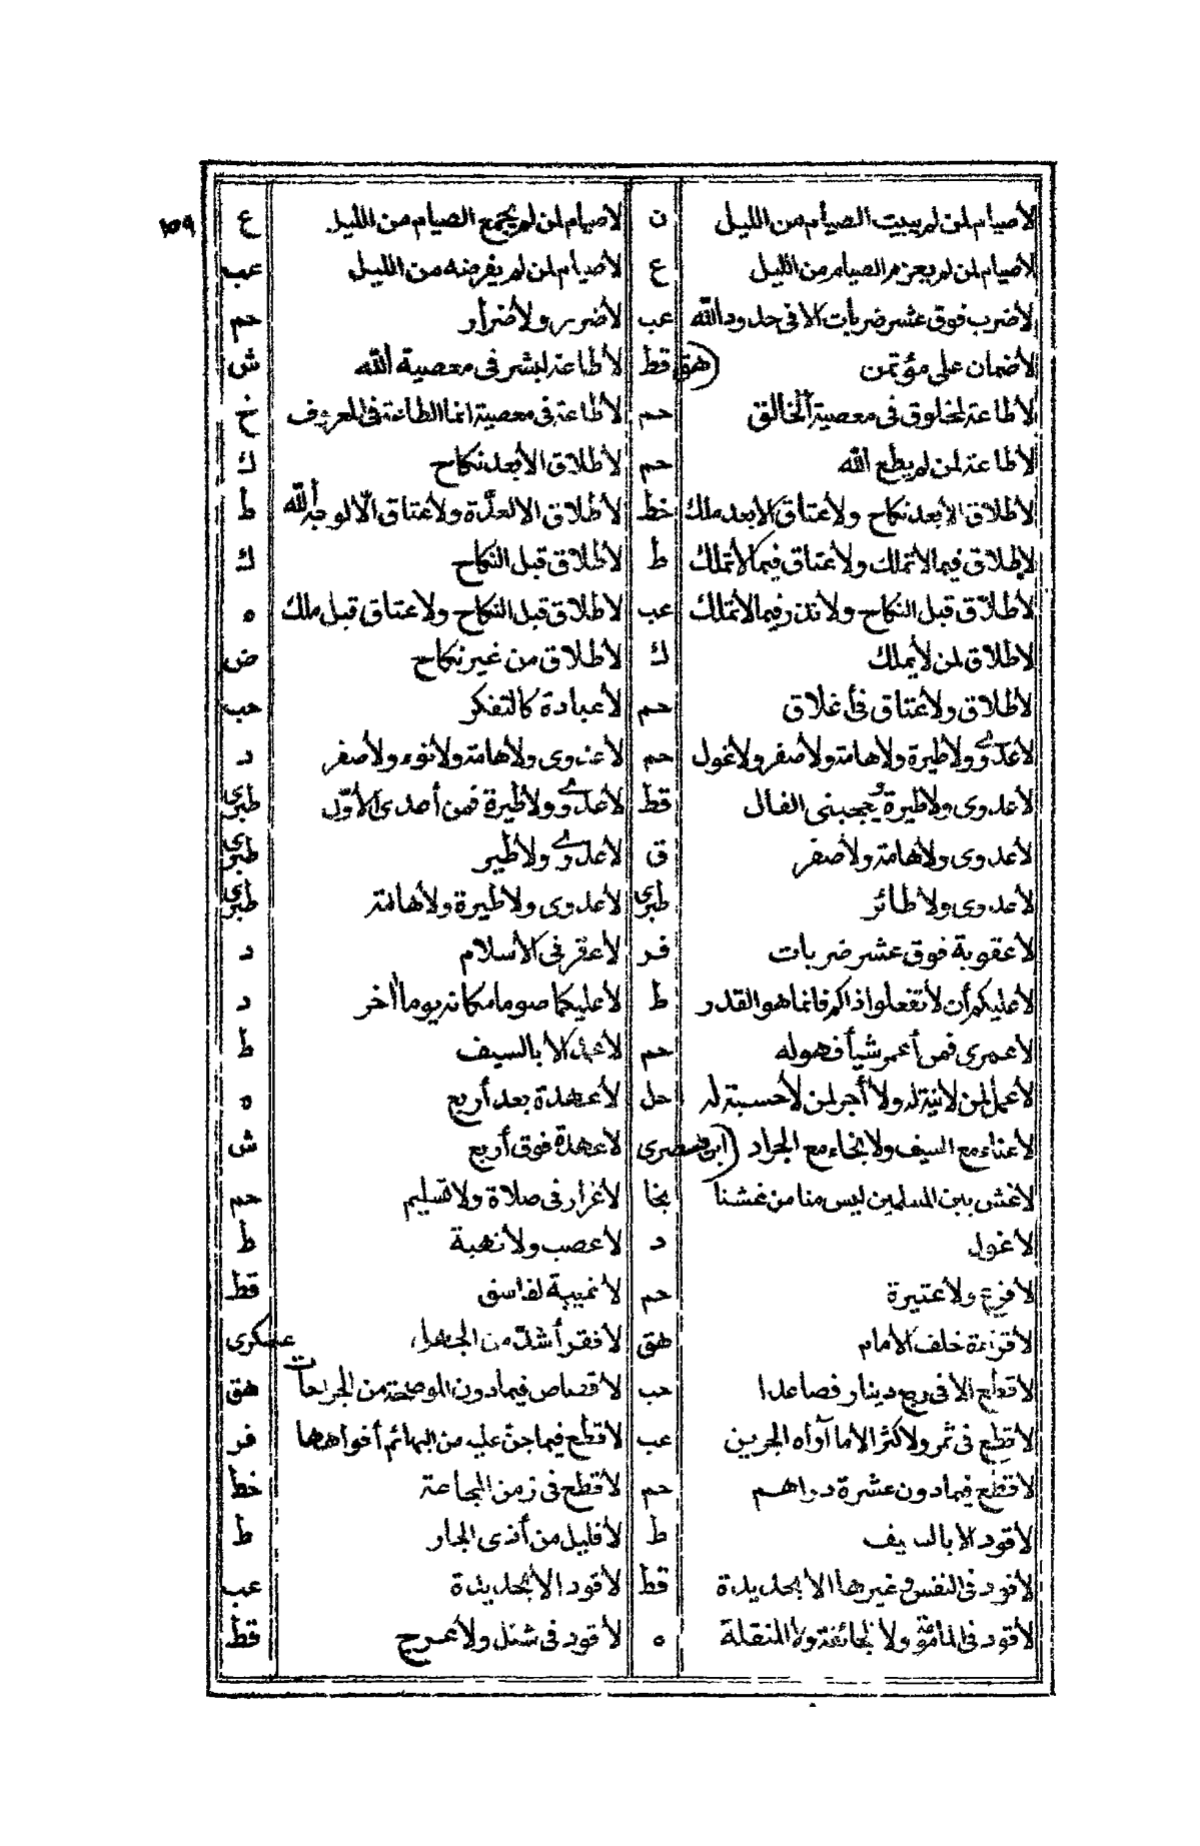 ١٥٩
لا صيام لمن لم يبيت الصيام من الليل ن لا صيام لمن لم يجمع الصيام من الليل ع
لا صيام لمن لم يعزم الصيام من الليل ع لا صيام لمن لم يفرضه من الليل عب
لا ضرب فوق عشر ضربات الا في حدود الله عب لا ضرر ولا ضرار حم
لا ضمان على مؤتمن (هق قط لا طاعة لبشر فى معصية الله ش
لا طاعة لمخلوق فى معصية الخالق حم لا طاعة فى معصية انما الطاعة فى المعروف خ
لا طاعة لمن لم يطع الله حم لا طلاق الا بعد نكاح ك
لا طلاق الا بعد نكاح ولا عتاق الا بعد ملك خط لا طلاق الا لعدة ولا عتاق الا لوجه الله ط
لا طلاق فيما لا تملك ولا عتاق فيما لا تملك ط لا طلاق قبل النكاح ك
لا طلاق قبل النكاح ولا نذر فيما لا تملك عب لا طلاق قبل النكاح ولا عتاق قبل ملك ه
لا طلاق لمن لا يملك ك لا طلاق من غير نكاح ض
لا طلاق ولا عتاق فى أغلاق حم لا عبادة كالتفكر حب
لا عدوى ولا طيرة ولا هامة ولا صفر ولا غول حم لا عدوى ولا هامة ولا نوء ولا صفر د
لا عدوى ولا طيرة ويعجبنى الفأل قط لا عدوى ولا طيرة فمن أعدى الأول طبرى
لا عدوى ولا هامة ولا صفر ق لا عدوى ولا طير طبرى
لا عدوى ولا طائر طبرى لا عدوى ولا طيرة ولا هامة طبرى
لا عقوبة فوق عشر ضربات فر لا عقر فى الأسلام د
لا عليكم أن لا تفعلوا ذاكم فانما هو القدر ط لا عليكما صوما مكانه يوما أخر د
لا عمرى فمن أعمر شيأ فهو له حم لا عمد الا بالسيف ط
لا عمل لمن لا نية له ولا أجر لمن لا حسبة له حل لا عهدة بعد أربع ه
لا غناء مع السيف ولا نجاء مع الجراد (ابن صصرى لا عهدة فوق أربع ش
لا غش بين المسلمين ليس منا من غشنا بخا لا غرار فى صلاة ولا تسليم حم
لا غول د لا غصب ولا نهبة ط
لا فرع ولا عتيرة حم لا غيبة لفاسق قط
لا قراءة خلف الأمام هق لا فقر أشد من الجهل عسكرى
لا قطع الا فى ربع دينار فصاعدا حب لا قصاص فيما دون الموضحة من الجراحات هق
لا قطع فى ثمر ولا كثر الا ما آواه الجرين عب لا قطع فيما جنى عليه من البهائم أفواهها فر
لا قطع فيما دون عشرة دراهم حم لا قطع فى زمن المجاعة خط
لا قود الا بالسيف ط لا قليل من أذى الجار ط
لا قود فى النفس وغيرها الا بحديدة قط لا قود الا بحديدة عب
لا قود فى المأمومة ولا الجائفة ولا المنقلة ه لا قود فى شلل ولا عرج قط